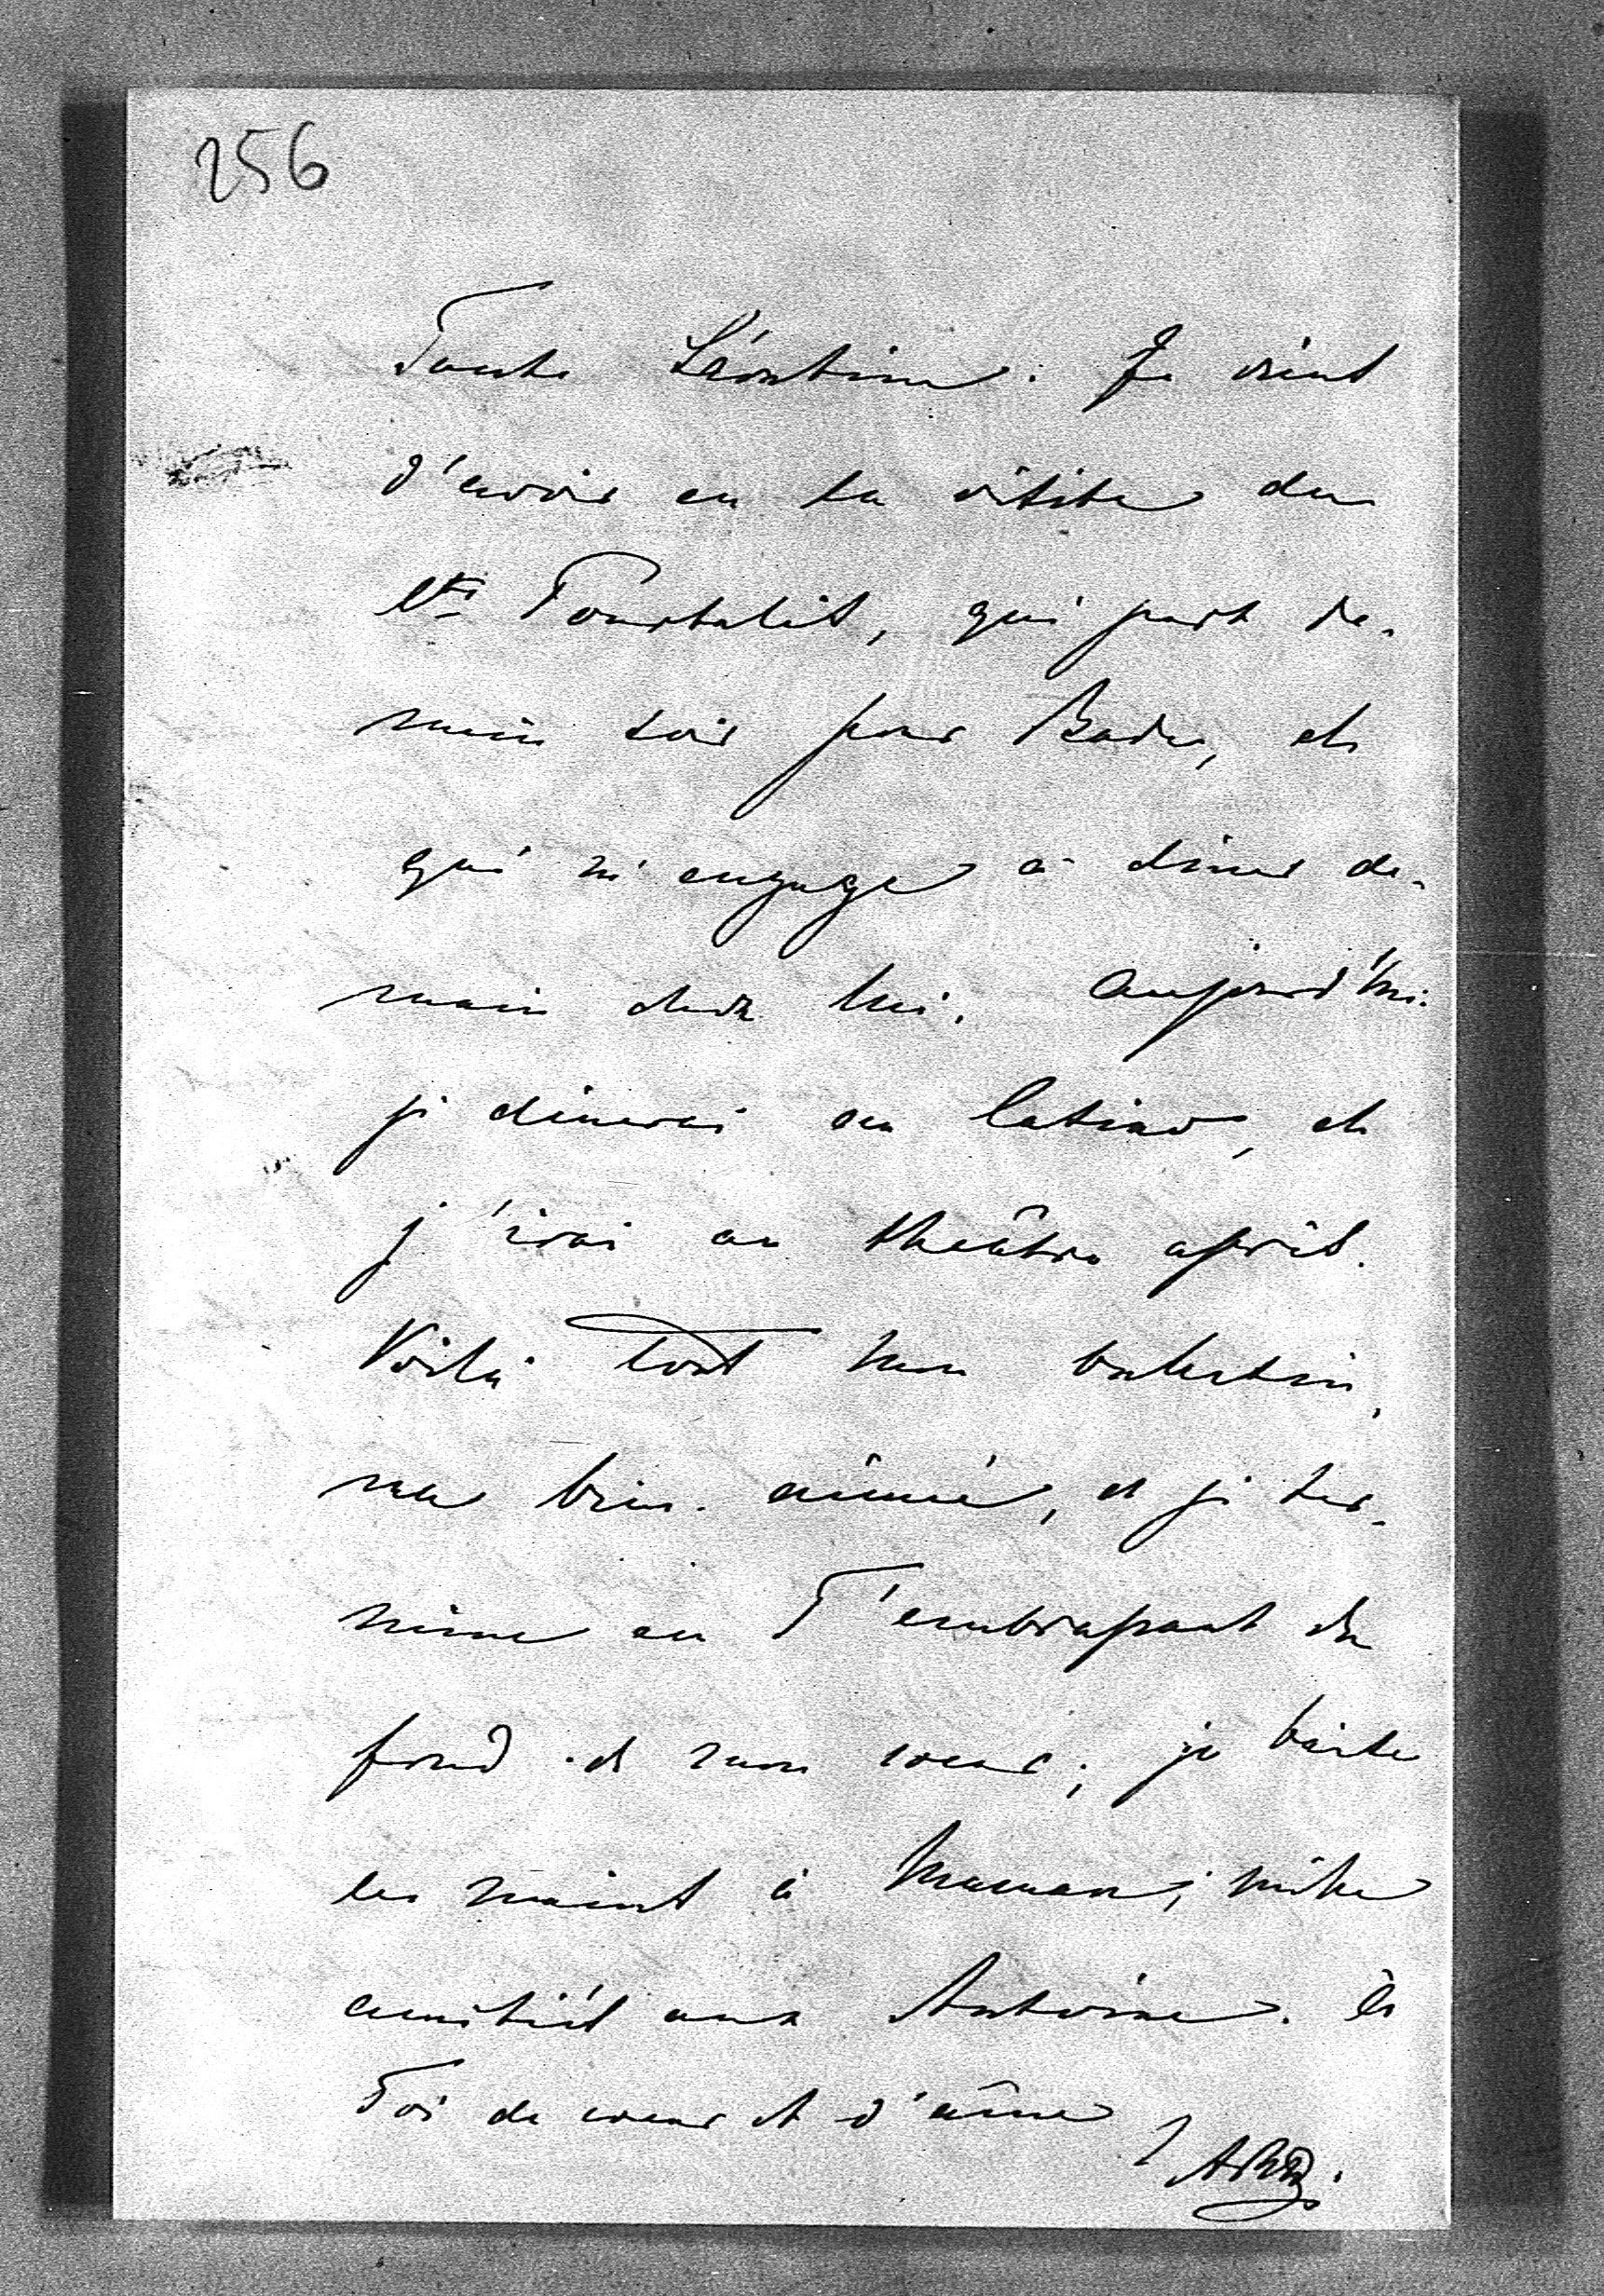 256
Tante Léontine. Je viens
d'avoir eu la visite du
Cte Pourtalès, qui part de-
main soir pour Bade, et
qui m'engage à dîner de-
main chez lui. Aujourd'hui
je dinerai au Casino, et
j'irai au théâtre après.
Voilà tout mon bulletin,
ma bien-aimée, et je ter-
mine en T'embrassant du
fond de mon coeur; je baise
les mains à Maman; mille
amitiés aux Antoine. à
Toi de coeur et d'âme